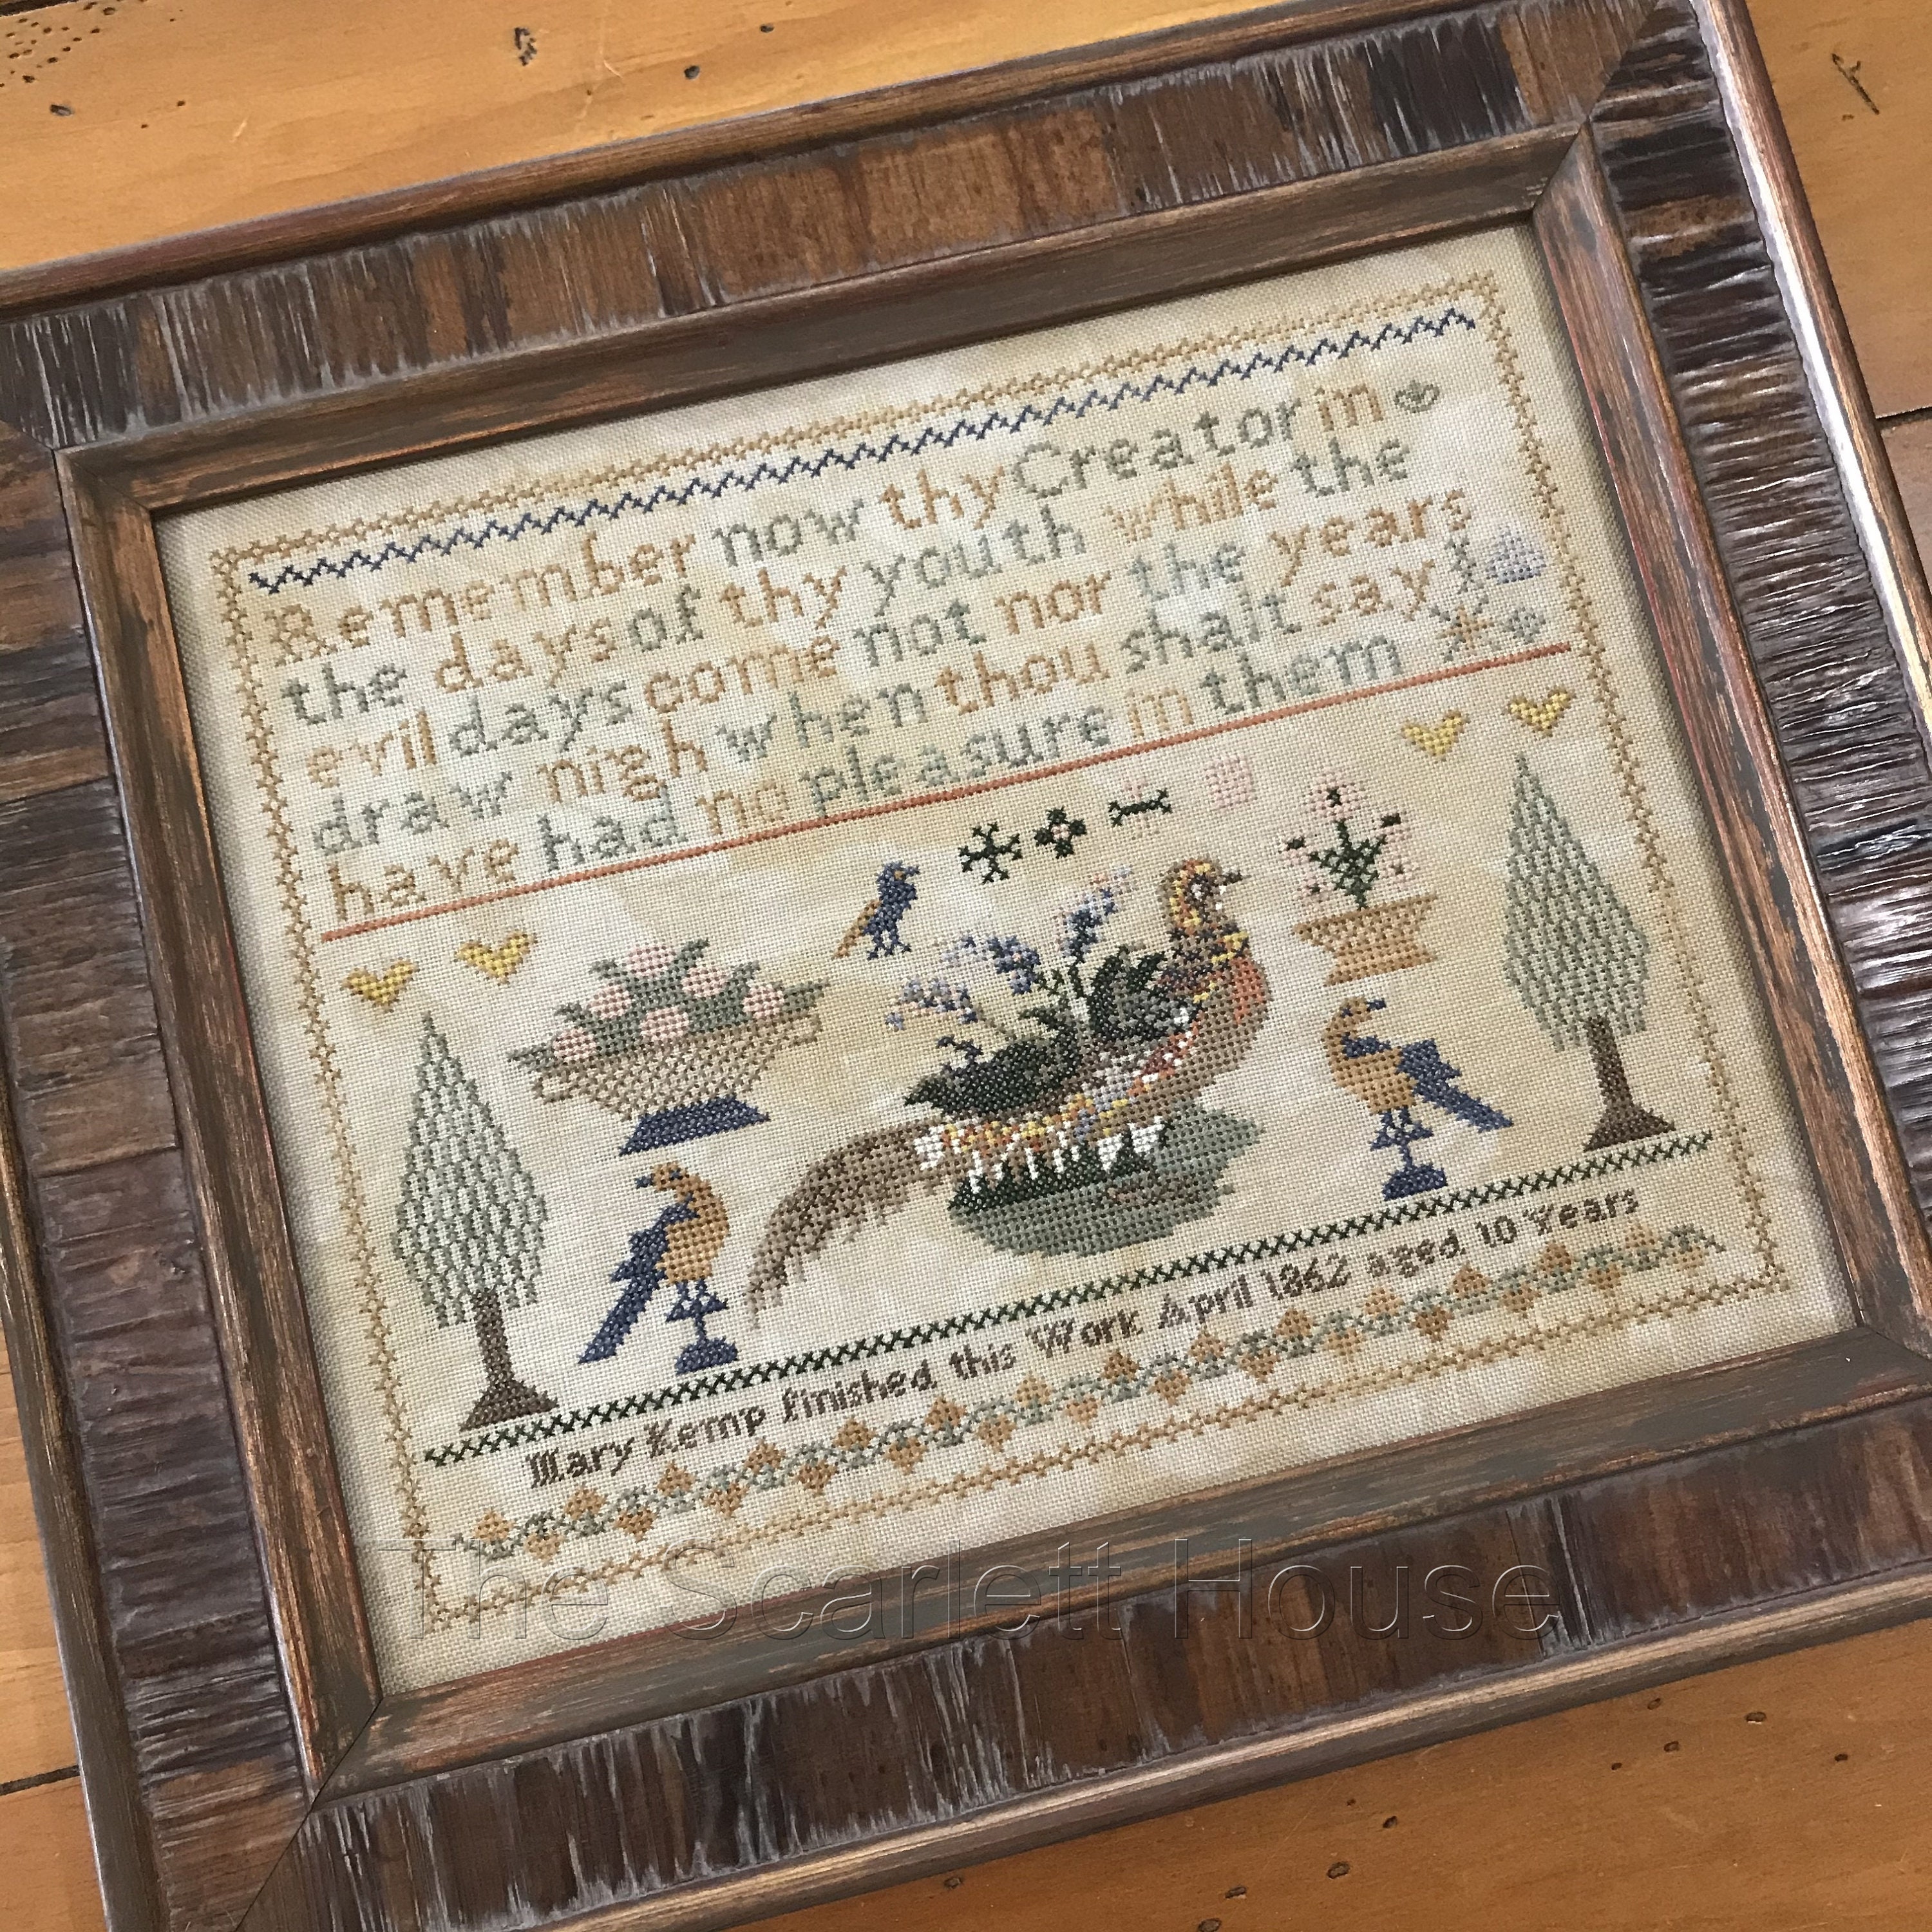 Remember now thy Creator in
the days of thy youth while the
evil days come not nor the years
draw nigh when thou shalt say I
have had no pleasure in them
Mary Kemp finished this Work April 1862 aged 10 Years
The Scarlett House